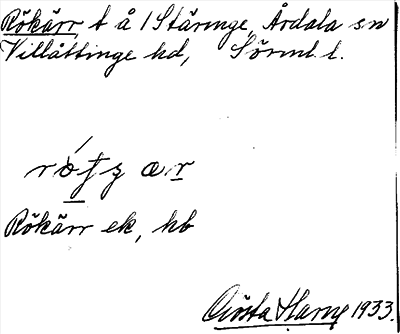 Rökärr, t å /Stäringe, Årdala sn
Villåttinge hd, Sörml. l.
Rökärr ek, hb
Gösta Harne 1933.